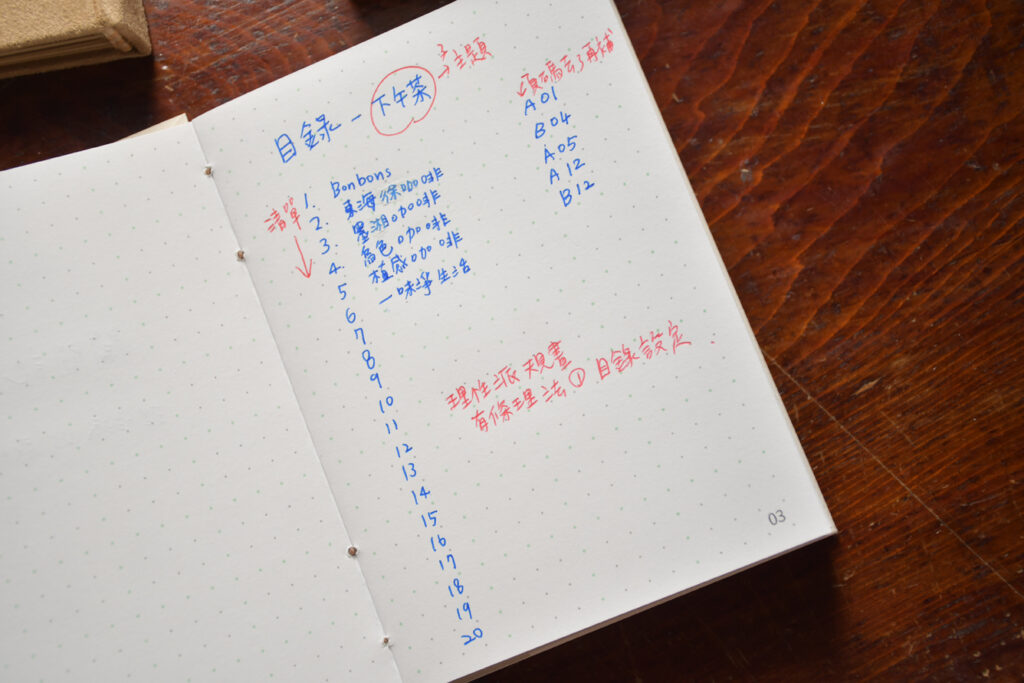 目錄 — 下午茶 → 主題
頁碼去了再補
清單
1. Bonbons A01
2. 東海徐咖啡 B04
3. 墨湖咖啡 A05
4. 色咖啡 A12
5 植感咖啡 B12
6 一味淨生活
7
8
9
10
11
12
13
14
15
16
17
18
19
20
理性派規畫
有條理法① 目錄設定
03